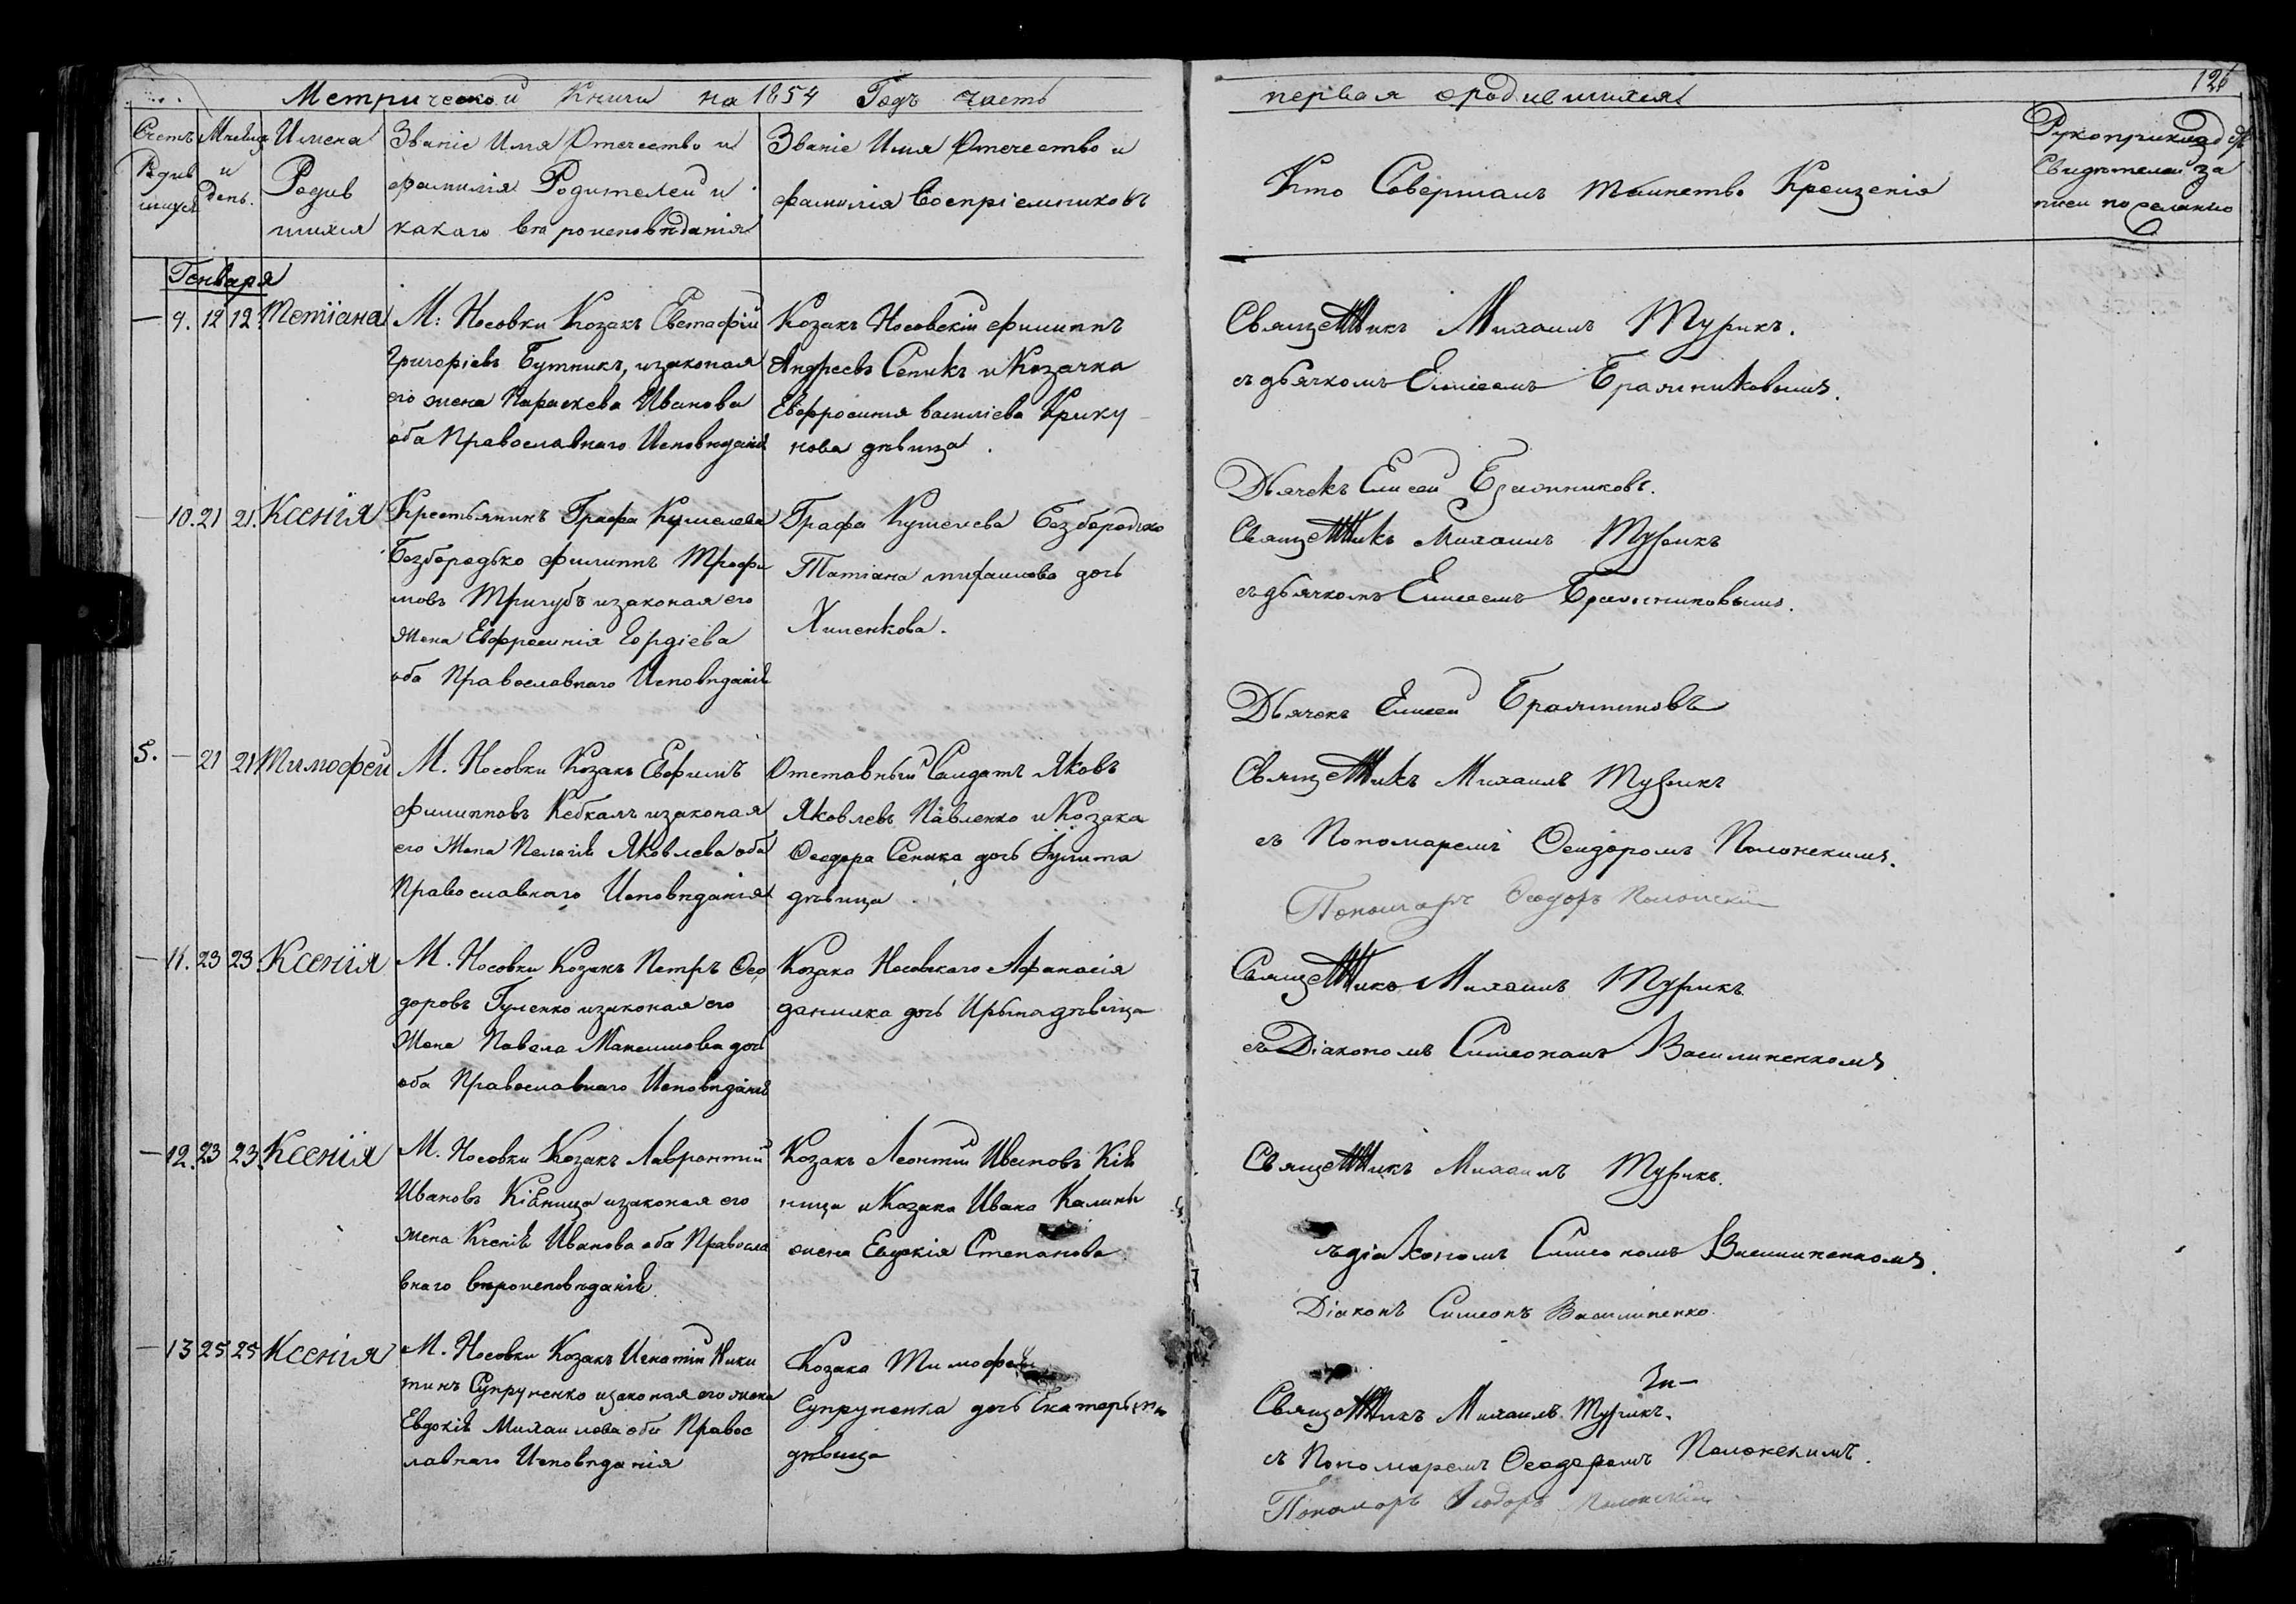 Метрической Книги на 1854 Годъ часть
первая ородившихся
126
Счетъ Родив шихся
Мѣсяц и День.
Имена Родив шихся
Званіе Имя Отечество и
фамилія Родителей и
какаго вѣроисповѣданія
Званіе Имя Отечество и
фамилія Воспріемниковъ
Кто Совершалъ таинство Крещенія
Рукоприклад
Свидѣтелей за
писи по желанію
Генваря
— 9. 12 12 Тетіана
М: Носовки Козакъ Евстафій
Григоріевъ Бутникъ, изаконая
его жена Параскева Иванова
оба Православнаго Исповѣданія
Козакъ Носовскій Филиппъ
Андреевъ Сеникъ и Козачка
Евфросинія василіева Крику
нова дѣвица.
Священникъ Михаилъ Турикъ.
съ дьячкомъ Елисеемъ Бражниковымъ.
Дьячекъ Елисей Бражниковъ.
— 10. 21 21. Ксенія
Крестьянинъ Графа Кушелева
Безбородько Филиппъ Трофи
мовъ Тригубъ изаконая его
Жена Евфросинія Гордіева
оба Православнаго Исповѣданія
Графа Кушелева Безбородько
Татіана михаилова дочь
Хименкова.
Священникъ Михаилъ Турикъ
съ дьячкомъ Елисеемъ Бражниковымъ.
Дьячекъ Елисей Бражниковъ
5. — 21 21 Тимофей
М. Носовки Козакъ Евфимъ
Филипповъ Кебкалъ изаконая
его Жена Пелагія Яковлева оба
Православнаго Исповѣданія
Отставный Солдатъ Яковъ
Яковлевъ Павленко и Козака
Ѳеодора Сеника дочь Іулита
дѣвица
Священникъ Михаилъ Турикъ
съ Пономаремъ Ѳеодоромъ Полонскимъ.
Пономарь Ѳеодоръ Полонскій
— 11. 23 23 Ксенія
М. Носовки Козакъ Петръ Ѳео
доровъ Гуленко изаконая его
Жена Павела Максимова дочь
оба Православнаго Исповѣданія
Козака Носовскаго Афанасія
данилка дочь Ирына дѣвица
Священникъ Михаилъ Турикъ
съ Діакономъ Симеономъ Василиненкомъ.
— 12. 23 23. Ксенія
М. Носовки Козакъ Лаврентій
Ивановъ Кіяница изаконая его
жена Ксенія Иванова оба Правосла
внаго вѣроисповѣданія
Козакъ Леонтій Ивановъ Кія
ница и Козака Ивана Калины
жена Евдокія Степанова
Священникъ Михаилъ Турикъ.
съ діакономъ Симеономъ Василиненкомъ.
Діаконъ Симеонъ Василиненко.
— 13 25 25 Ксенія
М. Носовки Козакъ Игнатій Ники
тинъ Супруненко изаконая его жена
Евдокія Михаилова оба Правос
лавнаго Исповѣданія
Козака Тимофея
Супруненка дочь Екатерына
дѣвица
Священникъ Михаилъ Турикъ.
съ Пономаремъ Ѳеодоромъ Полонскимъ.
Пономарь Ѳеодоръ Полонскій